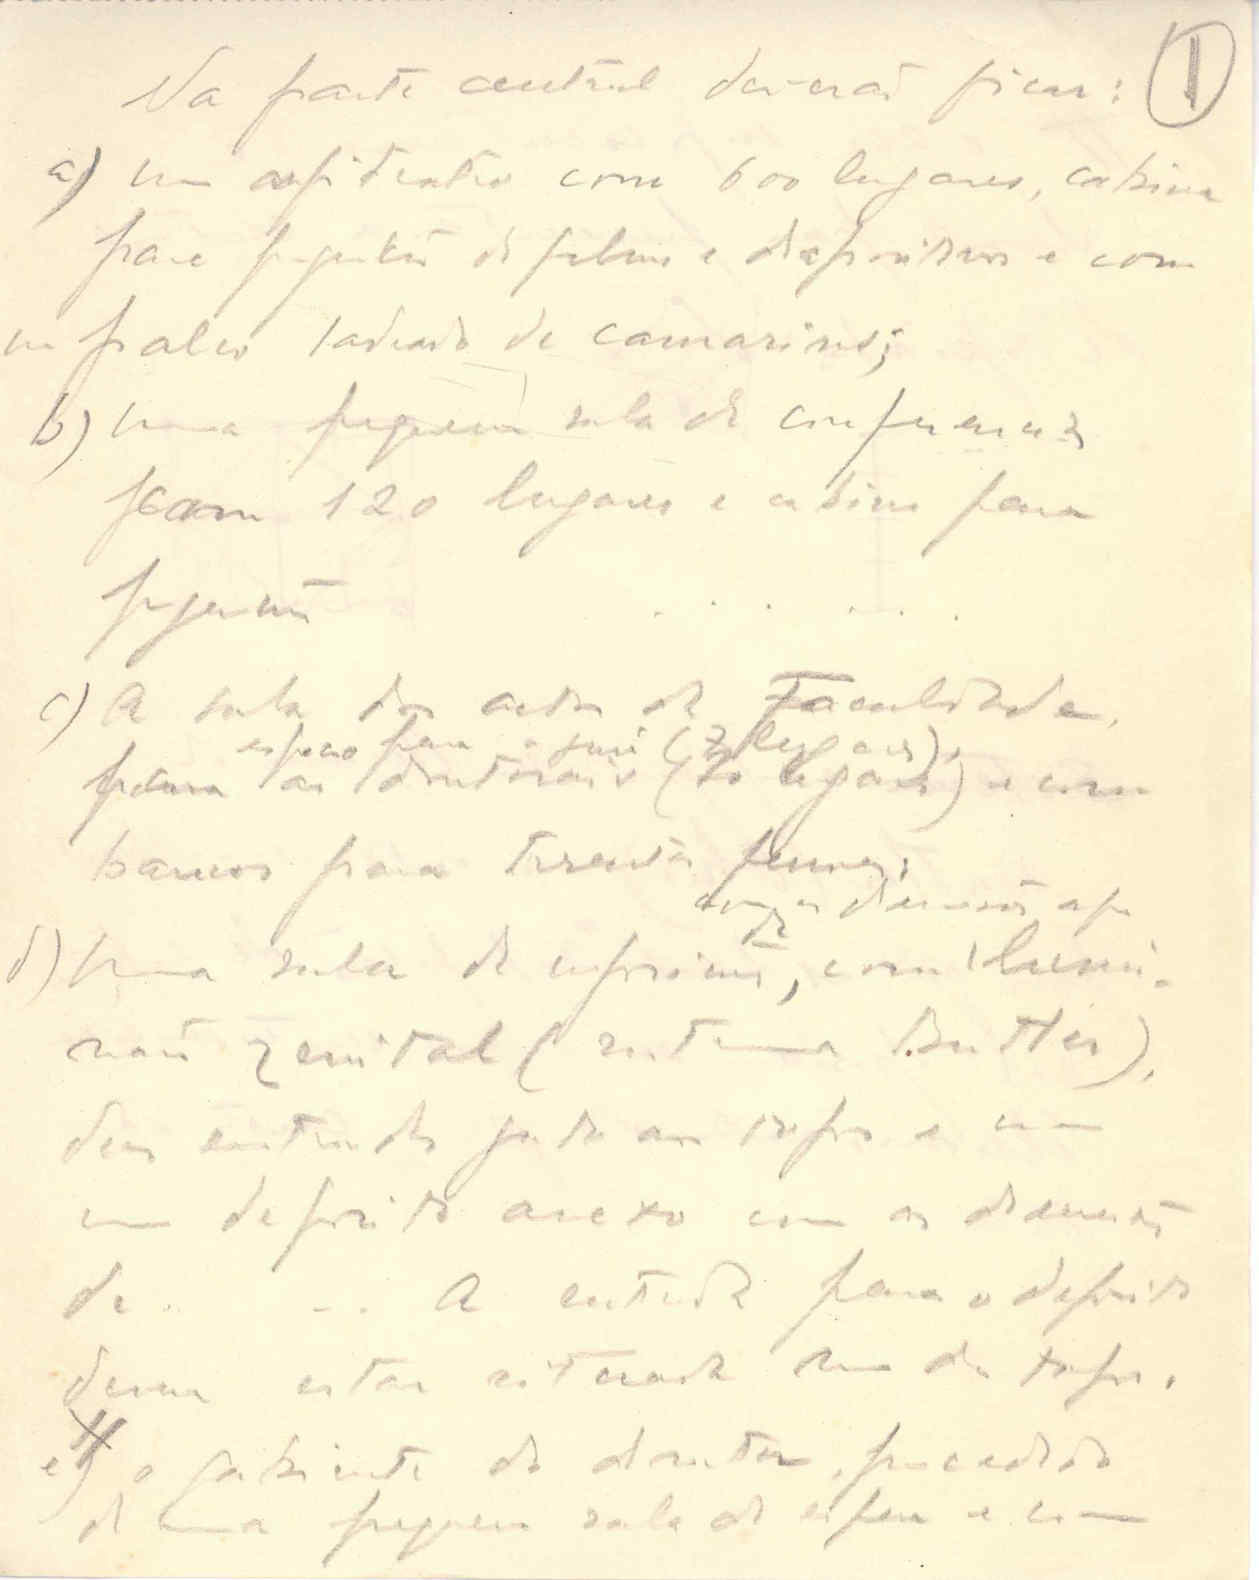 1
Na parte central deverão ficar:
a) um anfiteatro com 600 lugares, cabine
para projecção de filmes e diapositivos e com
um palco ladeado de camarins;
b) Uma pequena sala de conferencias
com 120 lugares e cabine para
projecção . . . . . .
c) A sala dos actos da Faculdade,
espaço para o juri ( lugares),
para os doutorais (20 lugares) e com
bancos para trezentas pessoas;
com as dimensões
d) Uma sala de exposições, com ilumi-
nação zenital (sistema Butler),
duas entradas junto aos topos e com
um deposito anexo com as dimensões
de . . . . . A entrada para o deposito
devera estar situada num dos topos.
e) o gabinete do director, precedido
de uma pequena sala de espera e com